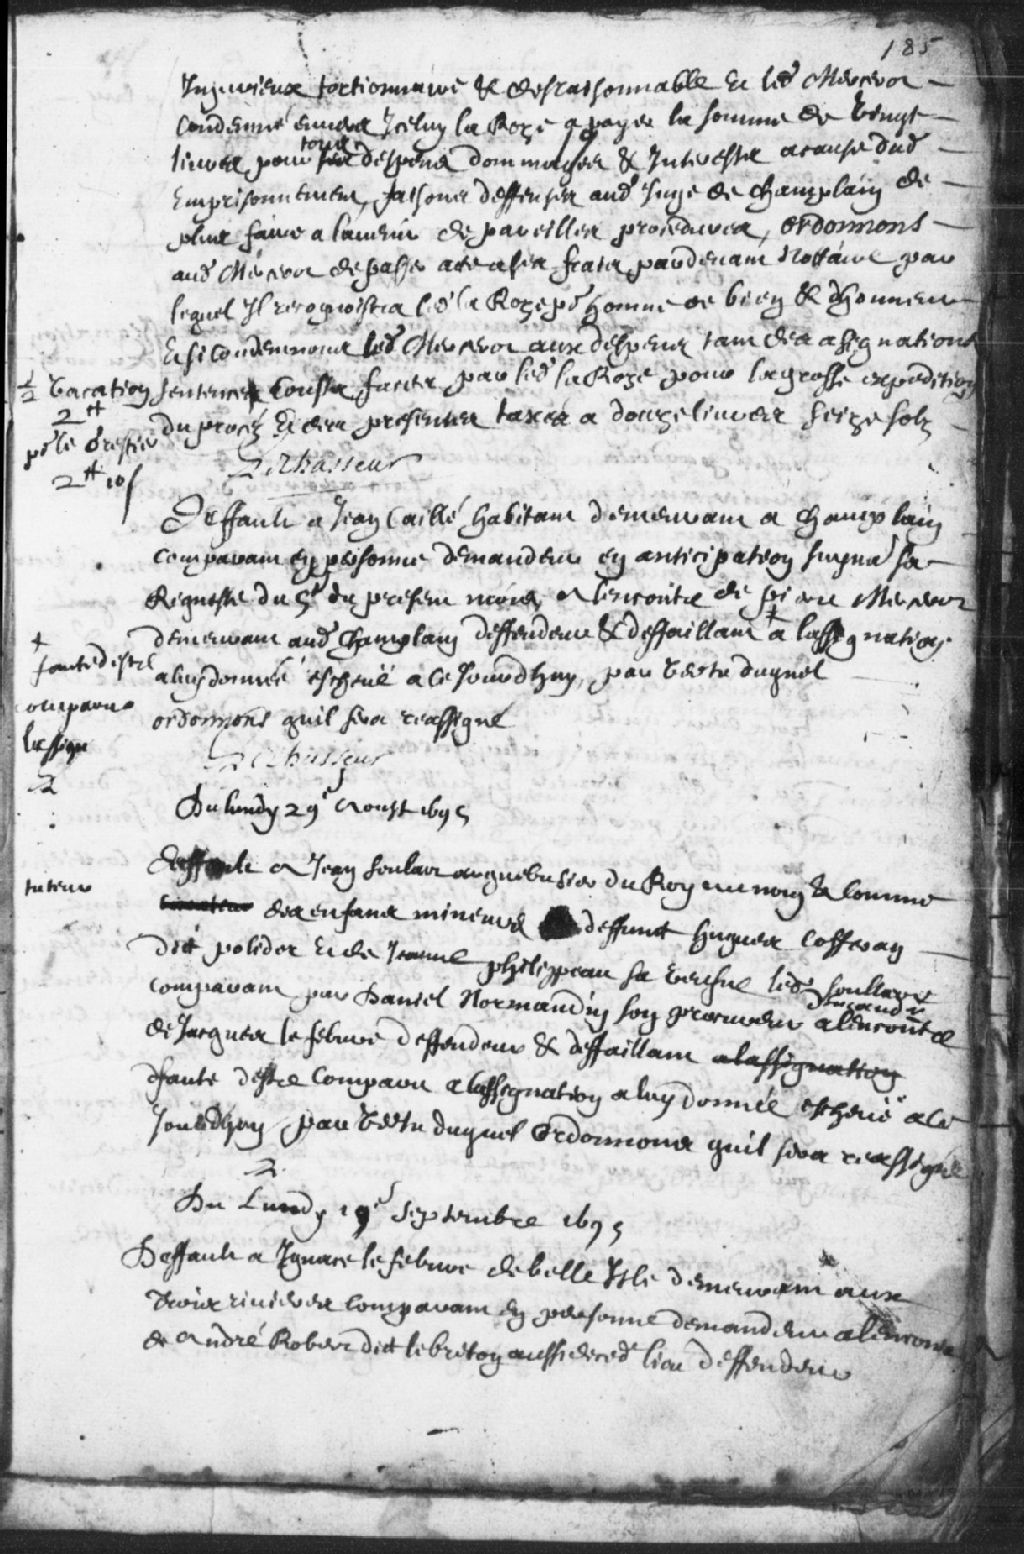 185
Injurieux tortionnaire & desraisonnable Et led Mercereau
Condemné envers Iceluy la Roze a payer la somme de Vingt
livres pour tous despens dommages & Interestz a cause dud
Emprisonnement, faisons deffenses aud Juge de Champlain de
plus faire a lavenir de pareilles procedures, ordonnons
aud Mercereau de passer acte a ses frais pardevant Nottaire par
lequel Il recognoistra led la Roze pr homme de bien & dhonneur
Et si Condemnons led Mercereau aux despens tant des assignations
sentences Coustz faites par led la Roze pour la grosse expedition
du procez Et des presentes taxés a douze livres seize solz
½ Vacation
2 ₶
pr le Greffier
2 ₶ 10 s
Lechasseur
Deffault a Jean Caillé habitant demeurant a Champlain
comparant en personne demandeur en anticipation suivant sa
Requeste du 5e du present mois, a lencontre de Mercereau
demeurant aud Champlain deffendeur & deffaillant + a lassignation
a luy donnée escheüe a ce Jourdhuy, par Vertu duquel
ordonnons quil sera reassigné
+
faute destre
comparu a
lassign
Lechasseur
Du lundy 29e Aoust 1695
Deffault a Jean Soulard arquebusier du Roy au nom & Comme
tuteur
des enfans mineurs deffunt Hugues Cosseron
dit Jeanne philippeau sa Veufve led Soullard
comparant par Daniel Normandin son procureur demandr alencontre
de Jacques lefebvre deffendeur & deffaillant a lassignation
dfaute destre Comparu a lassignation a luy donnée escheüe a ce
Jourdhuy par Vertu duquel Ordonnons quil sera reassigné
Du Lundy 19e Septembre 1695
Deffault a Ignace lefebvre de belle Isle demeurant aux
trois rivieres comparant en personne demandeur alencontre
de André Robert dit lebreton aussi dud lieu deffendeur